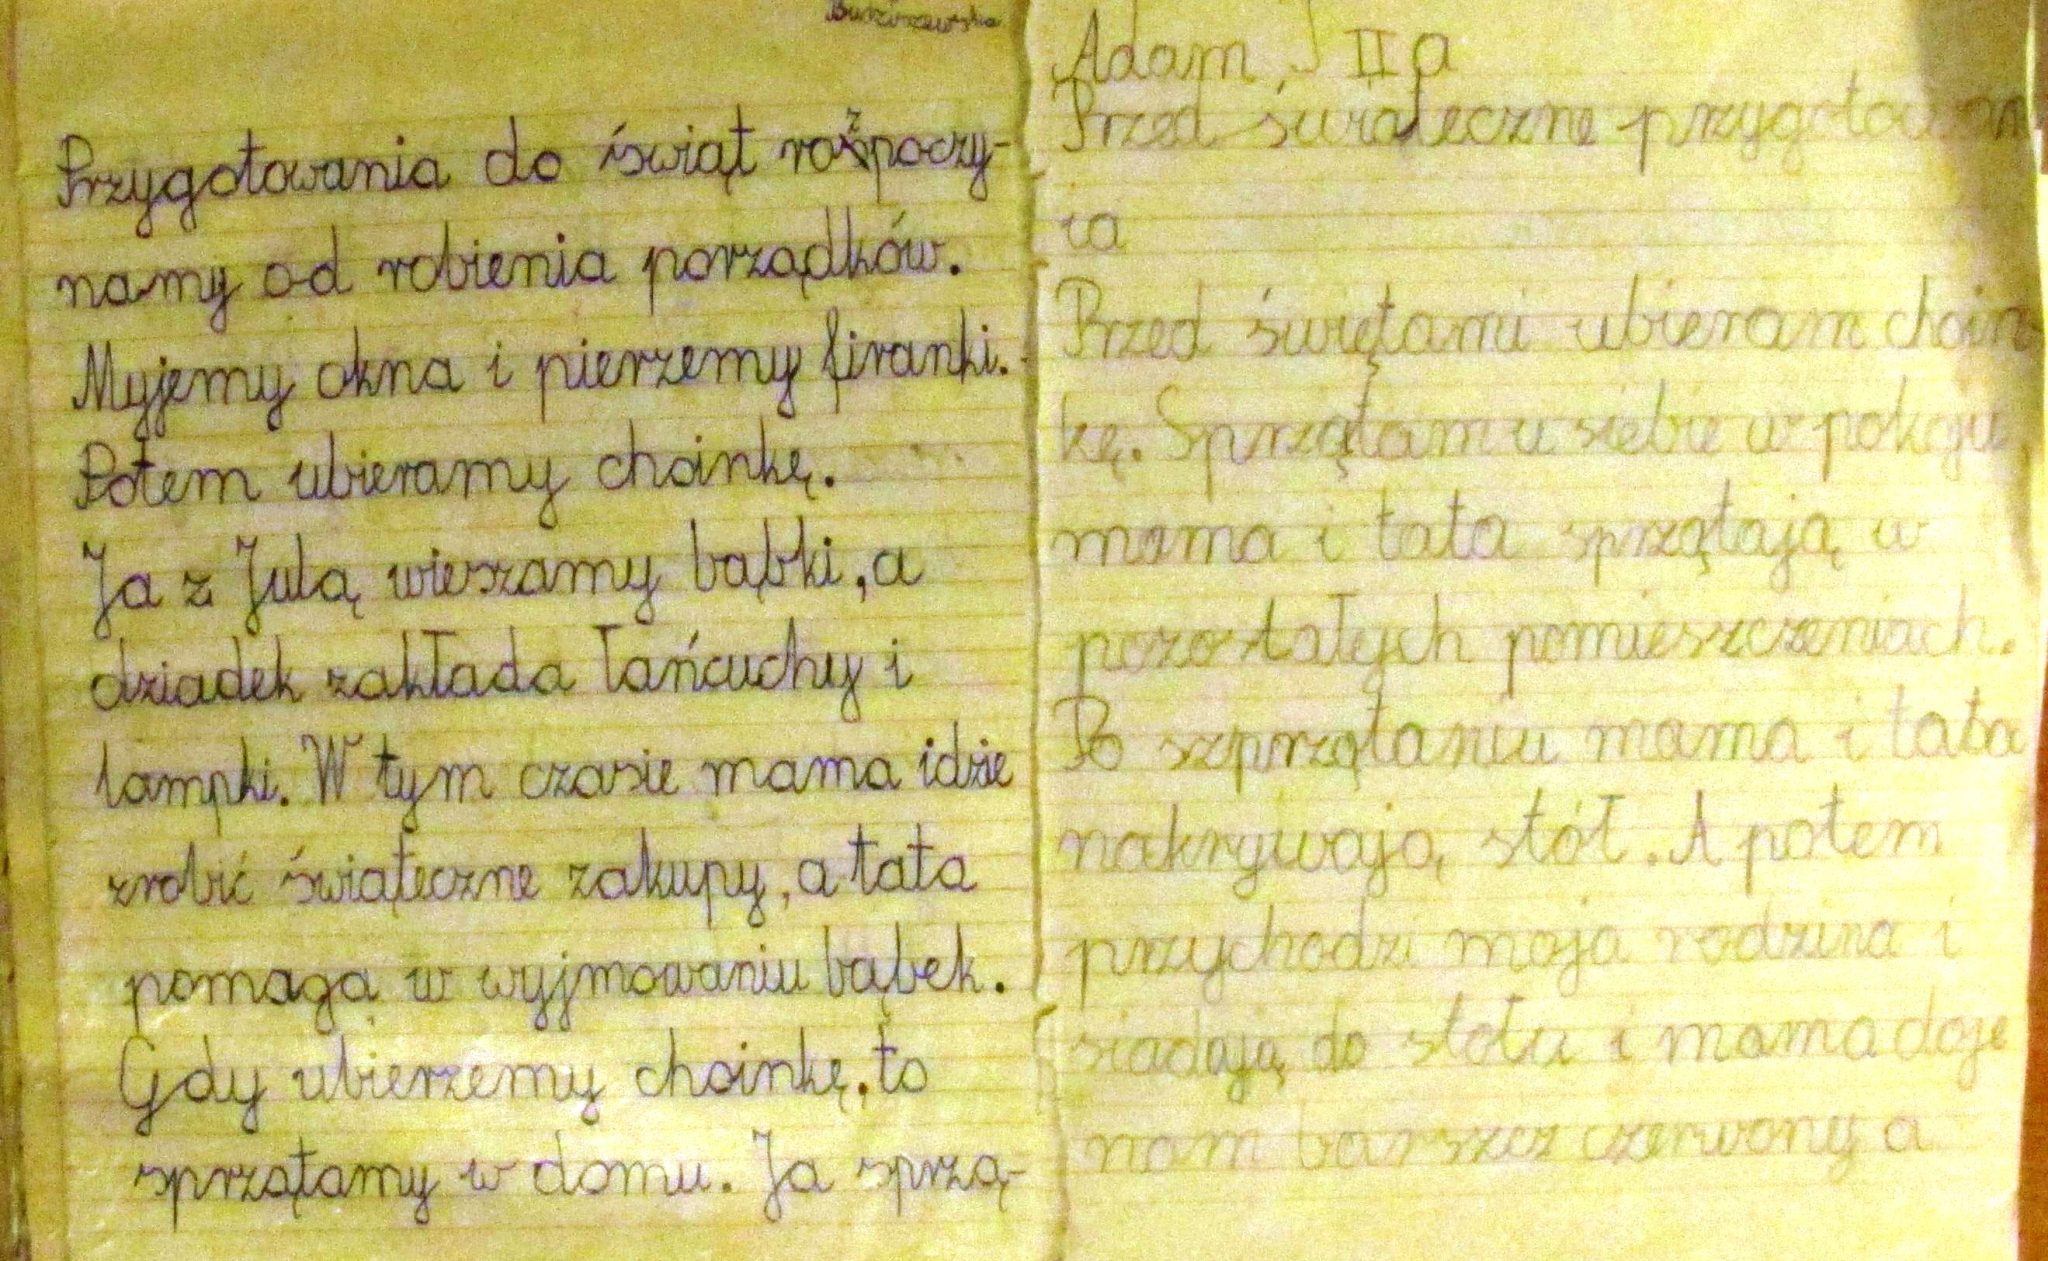 Przygotowania do świąt rozpoczy-
namy od robienia porządków.
Myjemy okna i pierzemy firanki.
Potem ubieramy choinkę.
Ja z Julą wieszamy bąbki, a
dziadek zakłada łańcuchy i
lampki. W tym czasie mama idzie
zrobić świąteczne zakupy, a tata
pomaga w wyjmowaniu bąbek.
Gdy ubierzemy choinkę, to
sprzątamy w domu. Ja sprzą-
Adam J IIa
Przed świąteczne przygotowan
ia
Przed świętami ubieram choin
kę. Sprzątam u siebie w pokoju,
mama i tata sprzątają w
pozostałych pomieszczeniach.
Po szprzątaniu mama i tata
nakrywają stół. A potem
przychodzi moja rodzina i
siadają do stołu i mama daje
nam barszcz czerwony a